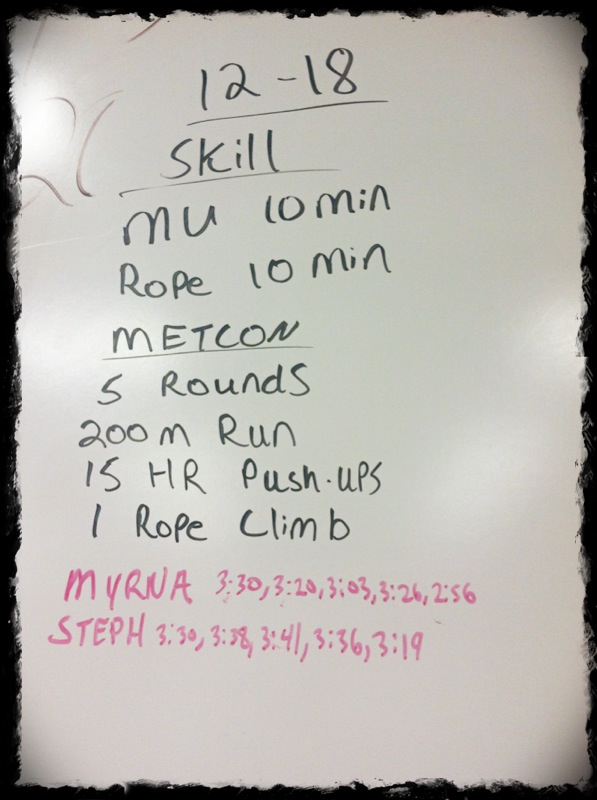 12-18
Skill
MU 10 min
Rope 10 min
METCON
5 Rounds
200 m Run
15 HR Push-ups
1 Rope Climb
MYRNA 3:30, 3:20, 3:03, 3:26, 2:56
STEPH 3:30, 3:38, 3:41, 3:36, 3:19